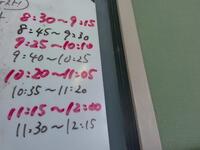 8:30~9:15
8:45~9:30
9:25~10:10
9:40~10:25
10:20~11:05
10:35~11:20
11:15~12:00
11:30~12:15